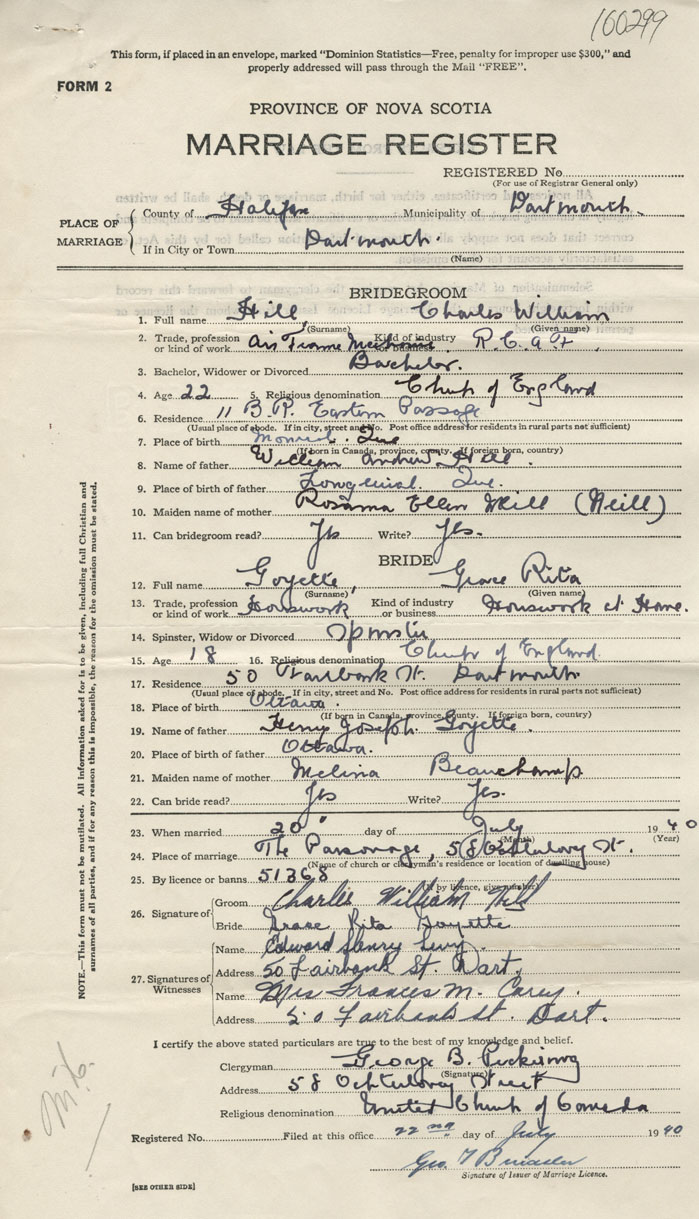 100299
This form, if placed in an envelope, marked "Dominion Statistics—Free, penalty for improper use $300," and
properly addressed will pass through the Mail "FREE".
FORM 2
PROVINCE OF NOVA SCOTIA
MARRIAGE REGISTER
REGISTERED No.
(For use of Registrar General only)
PLACE OF MARRIAGE
County of Halifax Municipality of Dartmouth.
If in City or Town Dartmouth.
(Name)
BRIDEGROOM
1. Full name Hill, Charles William
(Surname) (Given name)
2. Trade, profession or kind of work Air Frame Mechanic Kind of industry or business R.C.A.F.
3. Bachelor, Widower or Divorced Bachelor.
4. Age 22 5. Religious denomination Church of England
6. Residence 11 B.R. Eastern Passage
(Usual place of abode. If in city, street and No. Post office address for residents in rural parts not sufficient)
7. Place of birth Que
(If born in Canada, province, county. If foreign born, country)
8. Name of father William Andrew Hill.
9. Place of birth of father Que.
10. Maiden name of mother Ellen Neill (Neill)
11. Can bridegroom read? Yes Write? Yes.
BRIDE
12. Full name Goyette, Grace Rita
(Surname) (Given name)
13. Trade, profession or kind of work Houswork Kind of industry or business Houswork at Home.
14. Spinster, Widow or Divorced Spinster
15. Age 18 16. Religious denomination Church of England.
17. Residence 50 Fairbank St. Dartmouth
(Usual place of abode. If in city, street and No. Post office address for residents in rural parts not sufficient)
18. Place of birth Ottawa.
(If born in Canada, province, county. If foreign born, country)
19. Name of father Henry Joseph Goyette.
20. Place of birth of father Ottawa.
21. Maiden name of mother Melina Beauchamp
22. Can bride read? Yes Write? Yes.
23. When married 20" day of July 1940
(Month) (Year)
24. Place of marriage The Parsonage, 58 Ochterlovey St.
(Name of church or clergyman's residence or location of dwelling house)
25. By licence or banns 51368
(If by licence, give number)
26. Signature of
Groom Charles William Hill
Bride Grace Rita Goyette
27. Signatures of Witnesses
Name Edward Henry Levy.
Address 50 Fairbank St. Dart.
Name Mrs Frances M. Carey.
Address 50 Fairbank St. Dart.
I certify the above stated particulars are true to the best of my knowledge and belief.
Clergyman George B. Pickering
(Signature)
Address 58 Street
Religious denomination United Church of Canada
Registered No. Filed at this office 22nd day of July 1940
Geo.
Signature of Issuer of Marriage Licence.
[SEE OTHER SIDE]
NOTE.—This form must not be mutilated. All information asked for is to be given, including full Christian and
surnames of all parties, and if for any reason this is impossible, the reason for the omission must be stated.